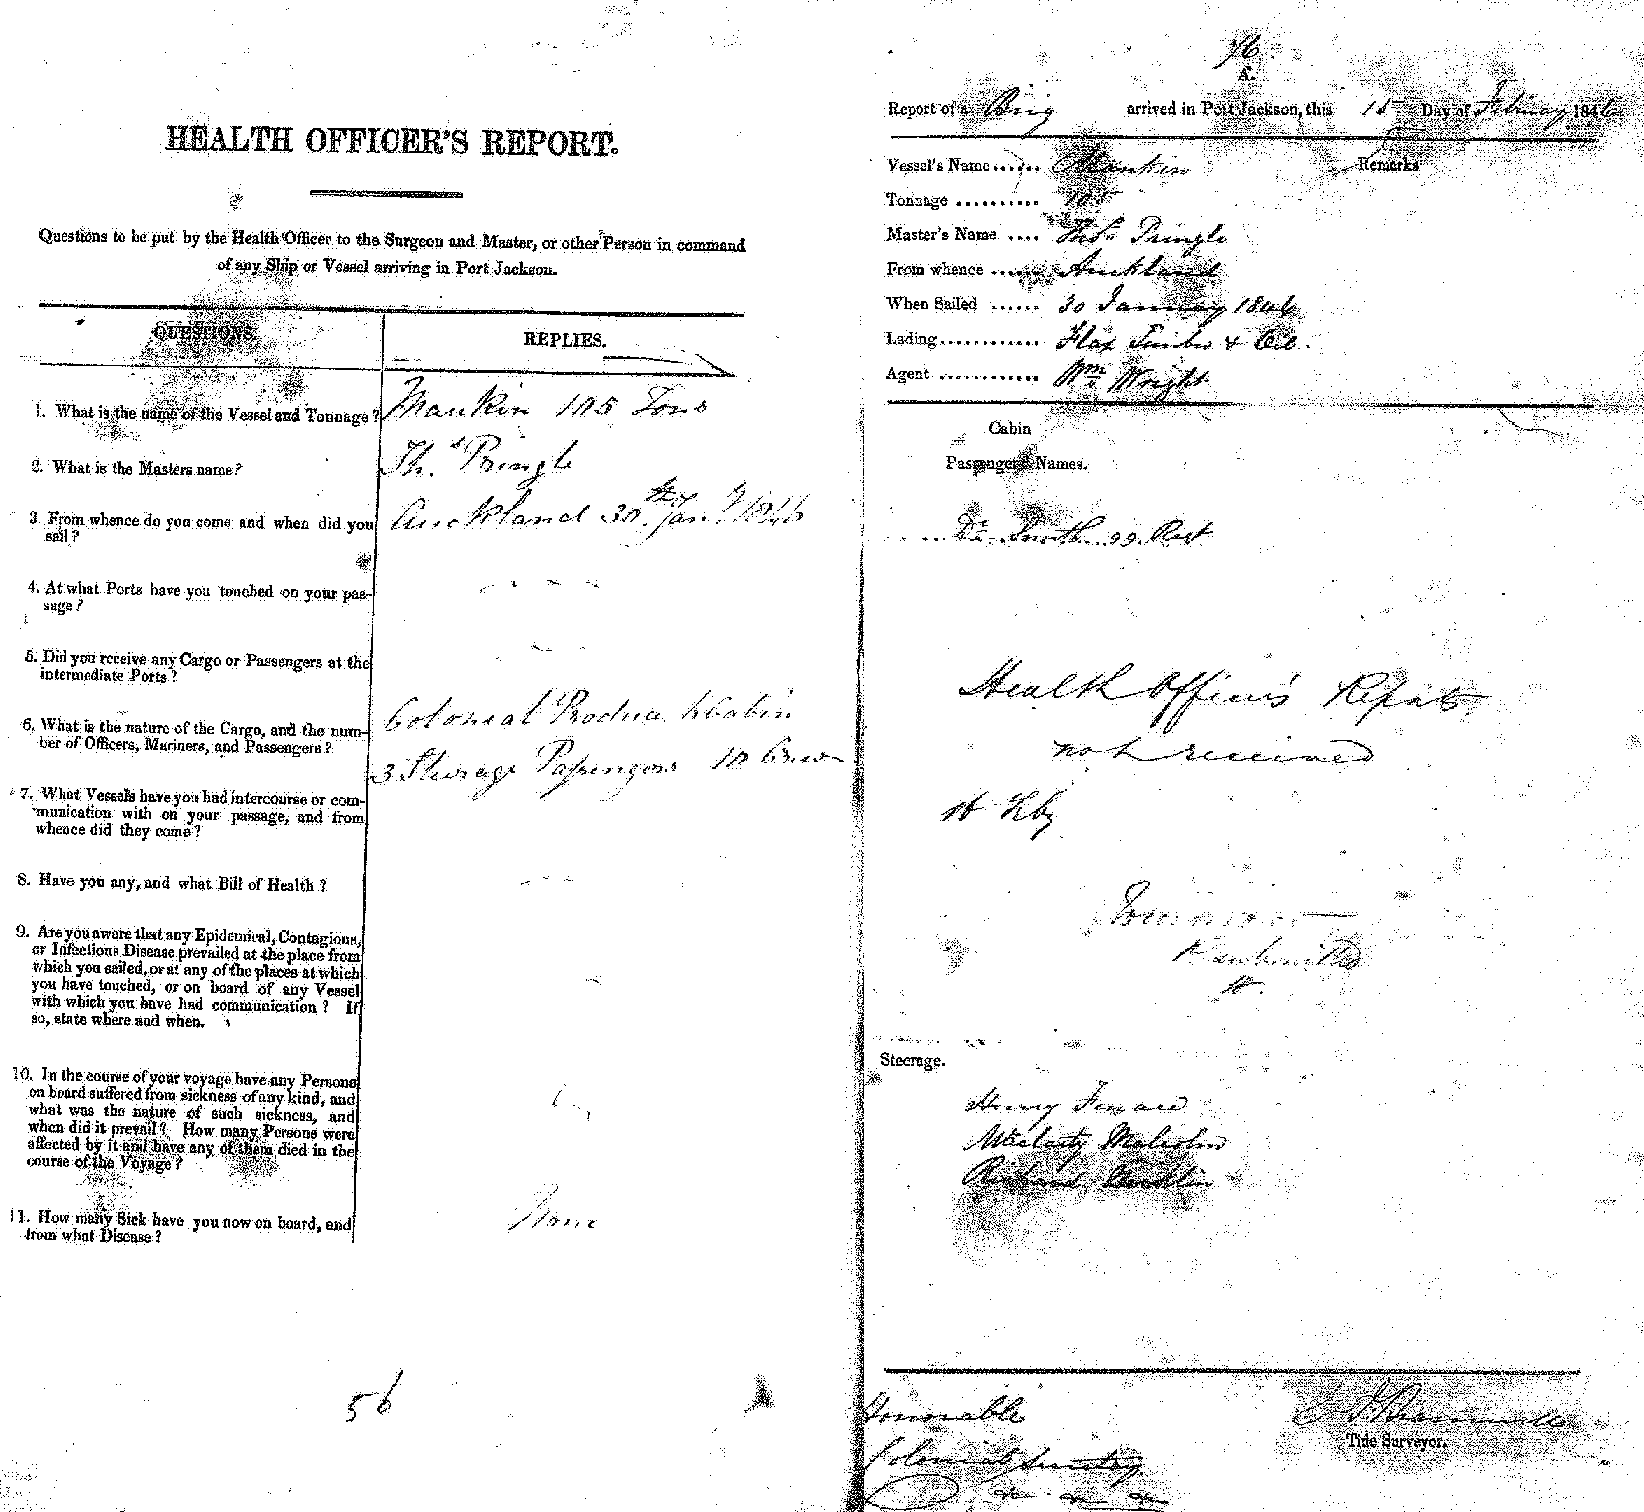 HEALTH OFFICER'S REPORT.
Questions to be put by the Health Officer to the Surgeon and Master, or other Person in command
of any Ship or Vessel arriving in Port Jackson.
QUESTIONS.
REPLIES.
1. What is the name of the Vessel and Tonnage?
Mankin 105 Tons
2. What is the Masters name?
Thos. Pringle
3 From whence do you come and when did you
sail?
Auckland 30th Jany 1846
4. At what Ports have you touched on your pas-
sage?
5. Did you receive any Cargo or Passengers at the
intermediate Ports?
6. What is the nature of the Cargo, and the num-
ber of Officers, Mariners, and Passengers?
Colonial Produce Cabin
3 Steerage Passengers 10 Crew
7. What Vessels have you had intercourse or com-
munication with on your passage, and from
whence did they come?
8. Have you any, and what Bill of Health?
9. Are you aware that any Epidemical, Contagious,
or Infectious Disease prevailed at the place from
which you sailed, or at any of the places at which
you have touched, or on board of any Vessel
with which you have had communication? If
so, state where and when.
10. In the course of your voyage have any Persons
on board suffered from sickness of any kind, and
what was the nature of such sickness, and
when did it prevail? How many Persons were
affected by it and have any of them died in the
course of the Voyage?
11. How many Sick have you now on board, and
from what Disease?
None
56
76
Report of a Brig arrived in Port Jackson, this 15 Day of February 1846
Vessel's Name...... Mankin Remarks
Tonnage .......... 105
Master's Name .... Thos. Pringle
From whence ...... Auckland
When Sailed ...... 30 January 1846
Lading............ Flax Timber & Oil.
Agent ............ Wm Wright
Cabin
Passengers Names.
Dr. Smith 99 Regt
Health Officer's Report
not received
16 Feby
submitted
Steerage.
Henry
Malcolm
Richard
Honorable
Colonial Secretary
Tide Surveyor.